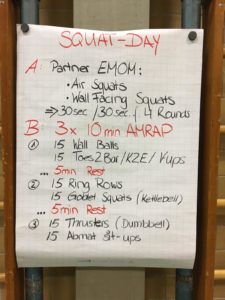 SQUAT-DAY
A: Partner EMOM:
• Air Squats
• Wall Facing Squats
⇒ 30sec / 30sec | 4 Rounds
B 3x 10min AMRAP
① 15 Wall Balls
15 Toes2Bar/K2E/Kups
... 5min Rest
② 15 Ring Rows
15 Goblet Squats (Kettlebell)
... 5min Rest
③ 15 Thrusters (Dumbbell)
15 Abmat Sit-ups